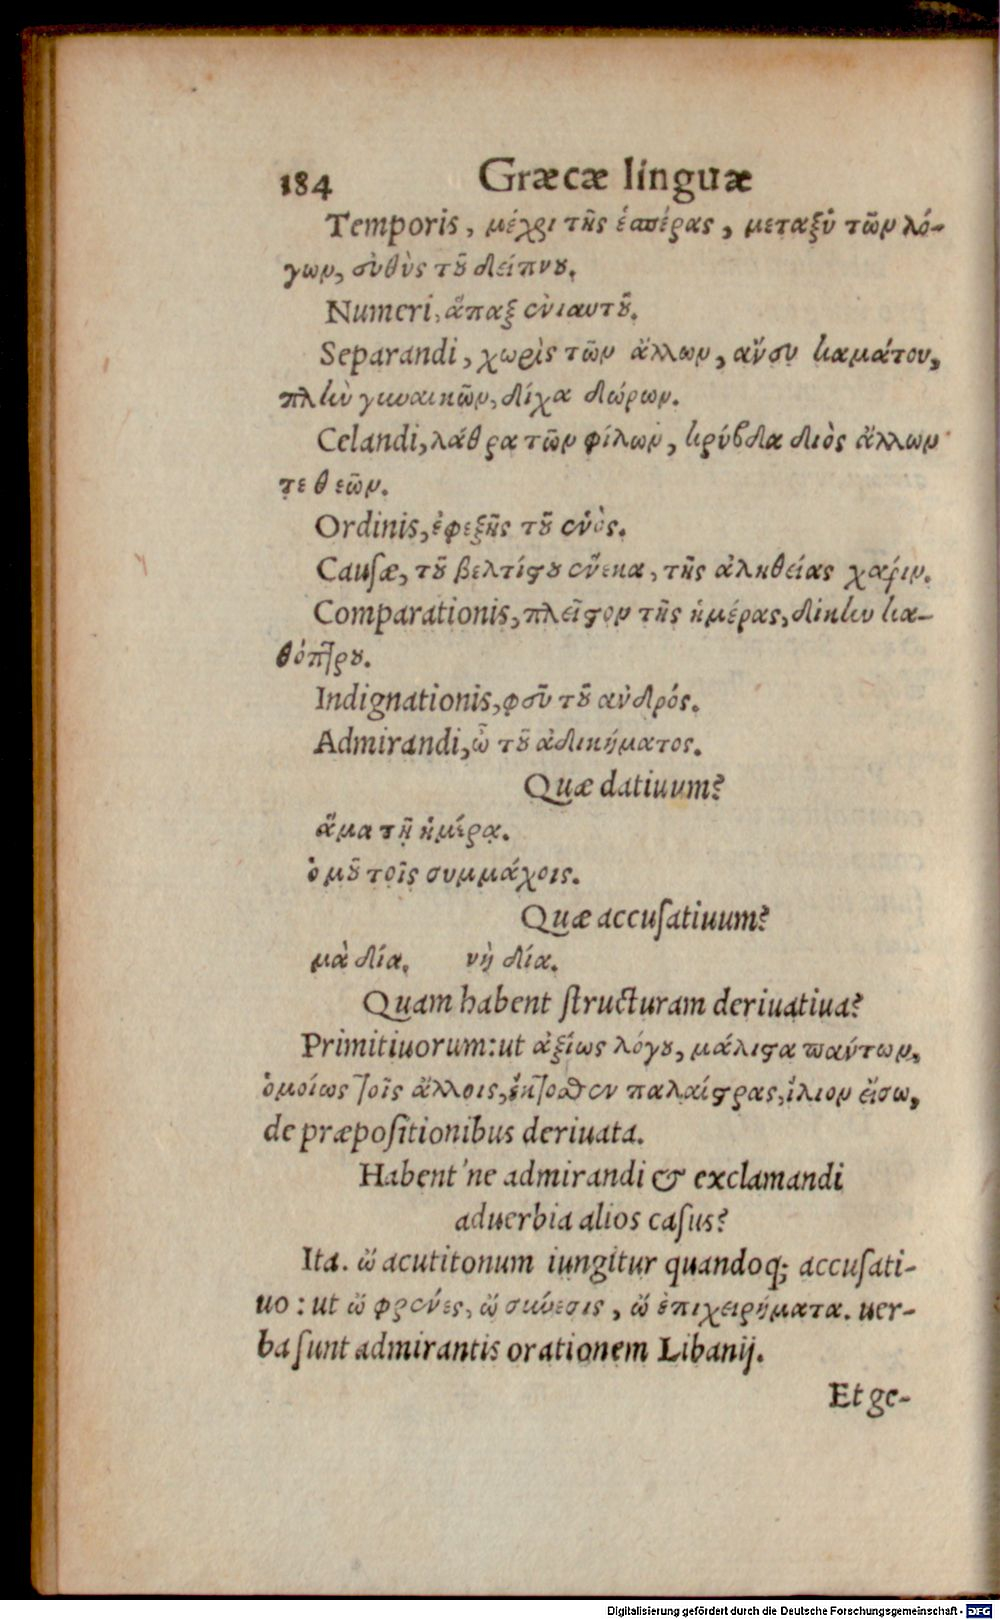 184 Græcæ linguæ
Temporis, μέχρι τῆς ἑσπέρας, μεταξὺ τῶν λό-
γων, εὐθὺς τοῦ δείπνου.
Numeri, ἅπαξ ἐνιαυτοῦ.
Separandi, χωρὶς τῶν ἄλλων, ἄνευ καμάτου,
πλὴν γυναικῶν, δίχα δώρων.
Celandi, λάθρα τῶν φίλων, κρύβδα διὸς ἄλλων
τε θεῶν.
Ordinis, ἐφεξῆς τοῦ ἑνὸς.
Cauſæ, τοῦ βελτίστου ἕνεκα, τῆς ἀληθείας χάριν.
Comparationis, πλεῖστον τῆς ἡμέρας, δίκην κα-
θόπτρου.
Indignationis, φεῦ τοῦ ἀνδρός.
Admirandi, ὦ τοῦ ἀδικήματος.
Quæ datiuum?
ἅμα τῇ ἡμέρᾳ.
ὁμοῦ τοῖς συμμάχοις.
Quæ accuſatiuum?
μὰ δία. νὴ δία.
Quam habent ſtructuram deriuatiua?
Primitiuorum: ut ἀξίως λόγου, μάλιστα πάντων,
ὁμοίως τοῖς ἄλλοις, ἔκτοσθεν παλαίστρας, ἴλιον εἴσω,
de præpoſitionibus deriuata.
Habent'ne admirandi & exclamandi
aduerbia alios caſus?
Ita. ὤ acutitonum iungitur quandoq; accuſati-
uo: ut ὤ φρένες, ὤ σύνεσις, ὤ ἐπιχειρήματα. uer-
ba ſunt admirantis orationem Libanij.
Et ge-
Digitalisierung gefördert durch die Deutsche Forschungsgemeinschaft - DFG